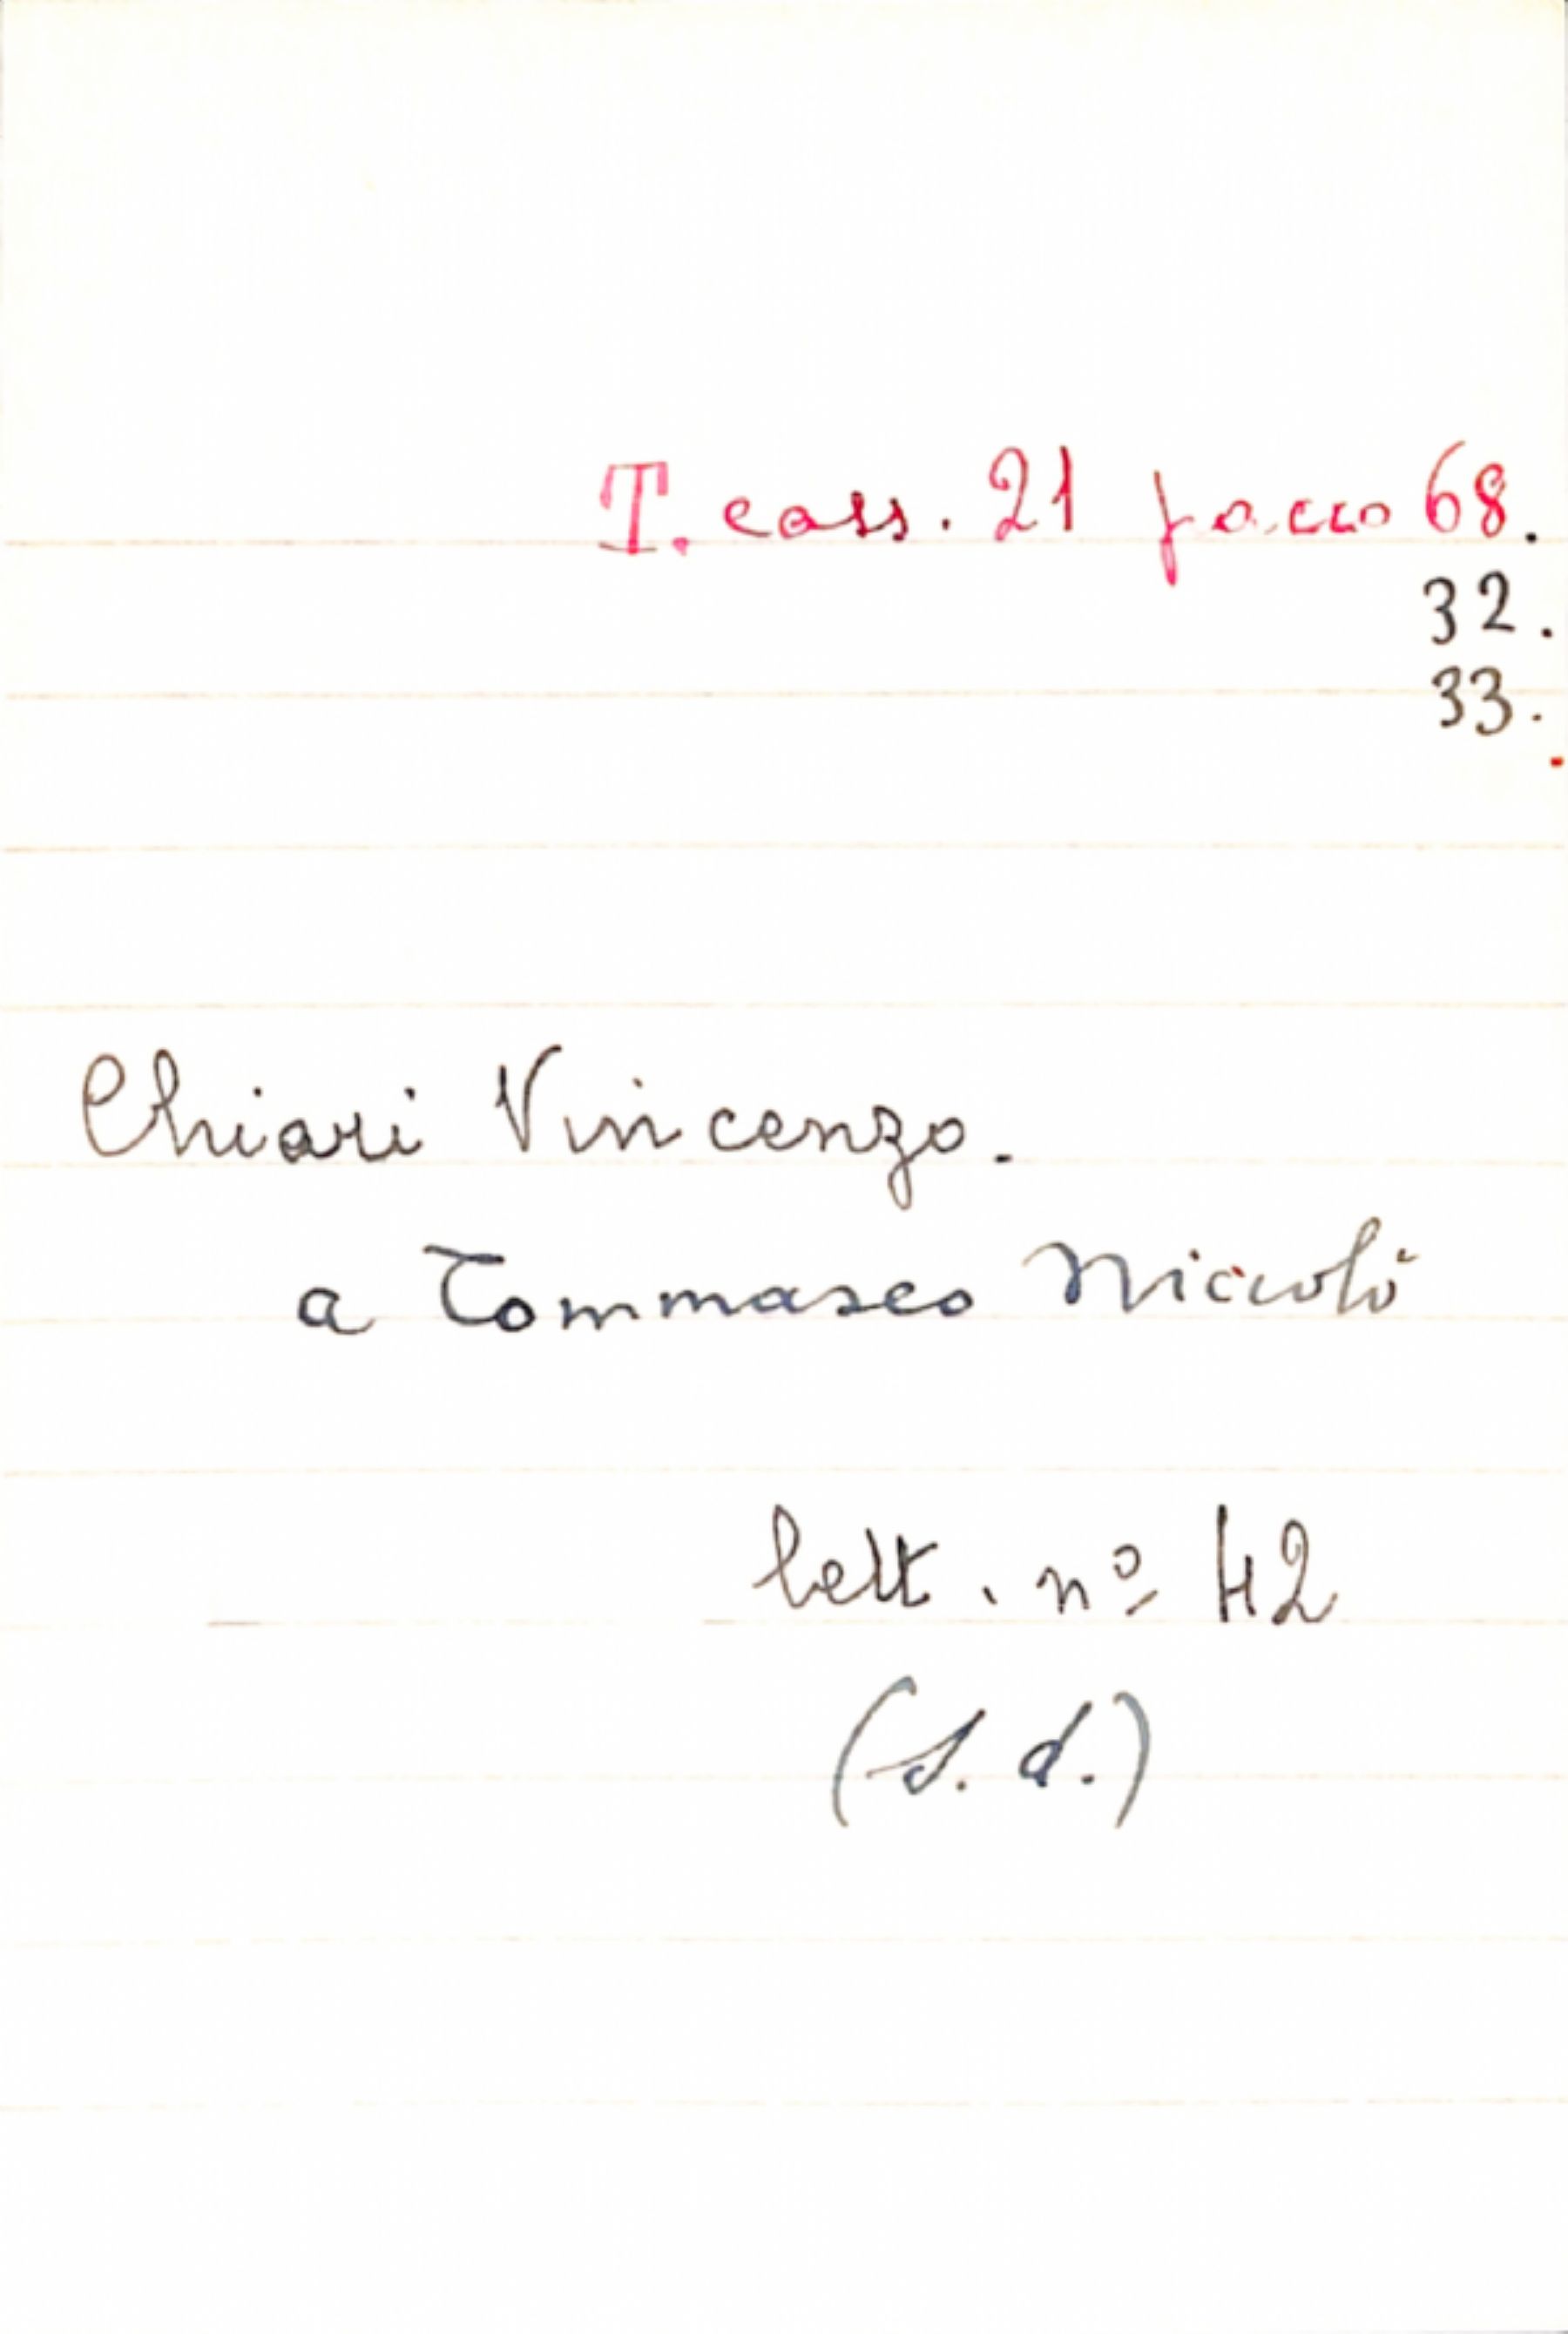 T. cass. 21 pacco 68.
32.
33.
Chiari Vincenzo.
a Tommaseo Niccolò
lett. nº 42
(s. d.)